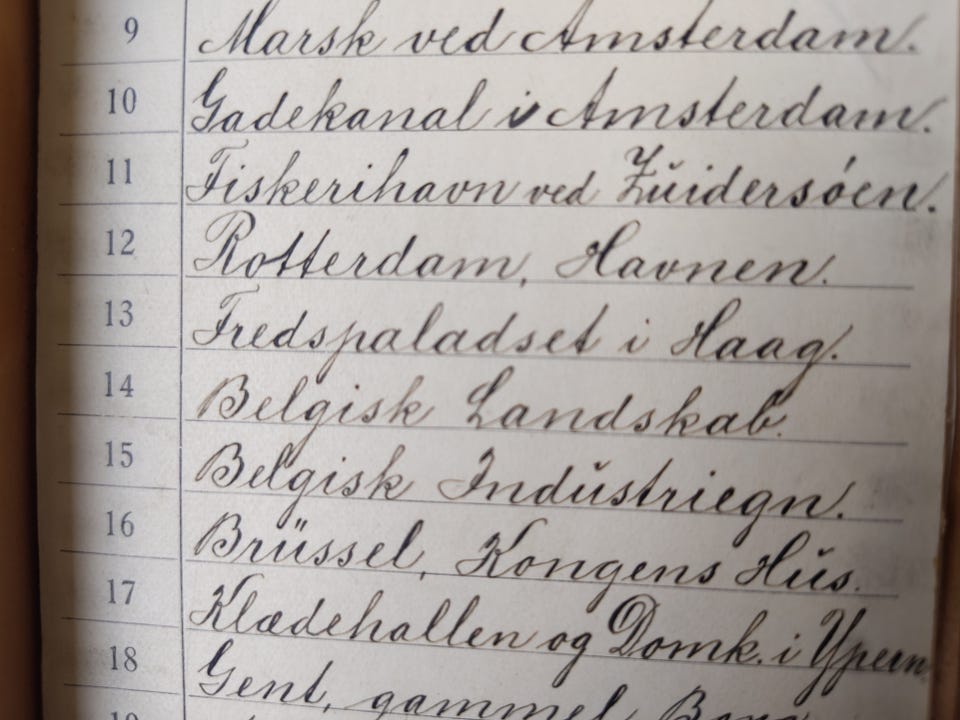 9 Marsk ved Amsterdam.
10 Gadekanal i Amsterdam.
11 Fiskerihavn ved Zuidersøen.
12 Rotterdam, Havnen.
13 Fredspaladset i Haag.
14 Belgisk Landskab.
15 Belgisk Industriegn.
16 Brüssel, Kongens Hus.
17 Klædehallen og Domk. i Ypern
18 Gent, gammel